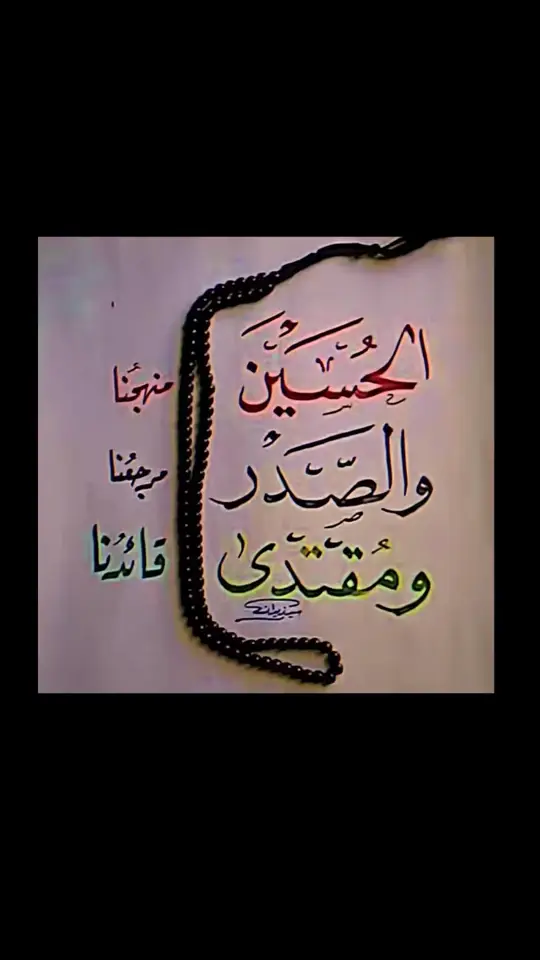 الحُسَيْن منهجُنا
والصَّدر مرجعُنا
ومُقتدىٰ قائدُنا